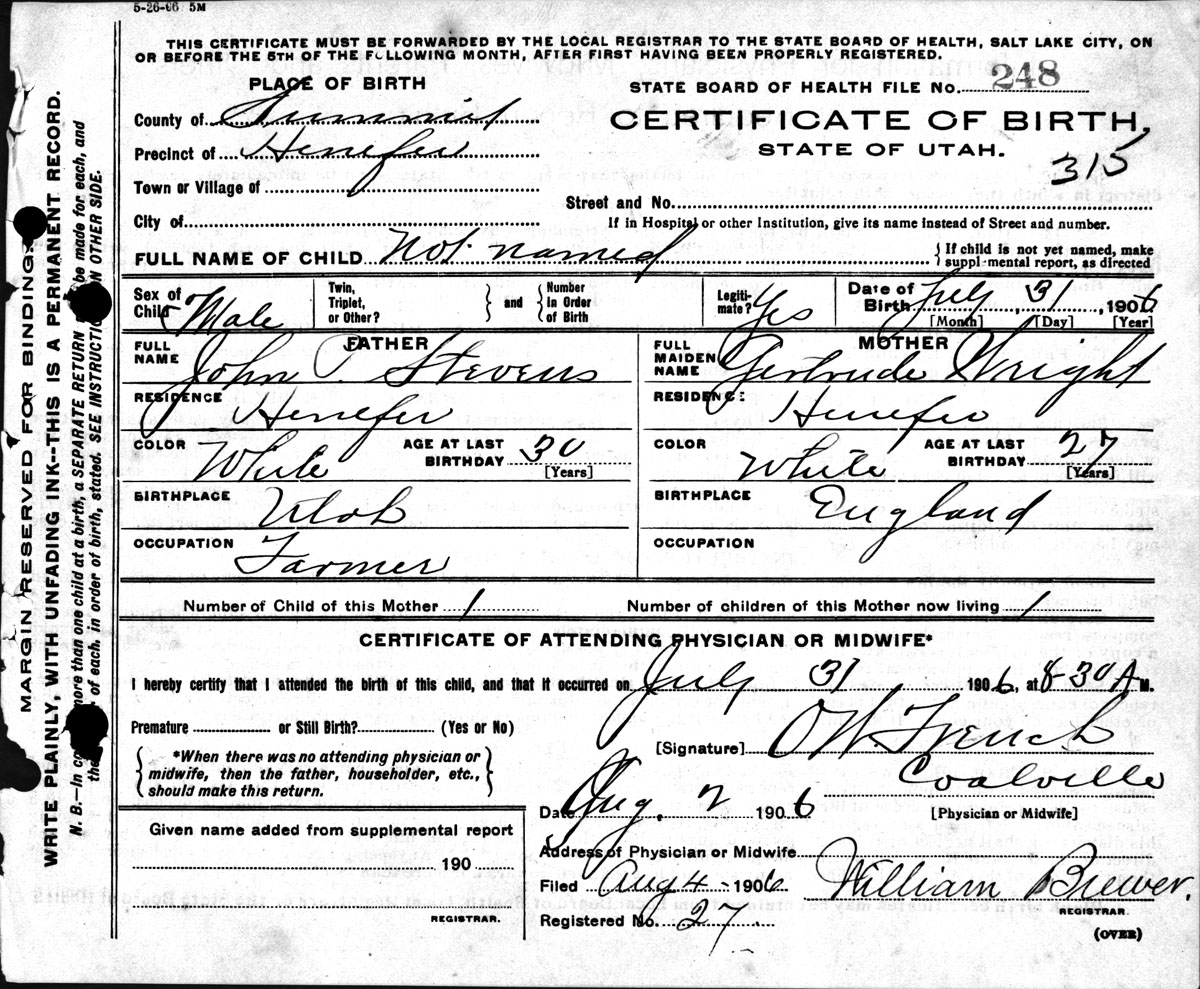 5-26-06 5M
THIS CERTIFICATE MUST BE FORWARDED BY THE LOCAL REGISTRAR TO THE STATE BOARD OF HEALTH, SALT LAKE CITY, ON
OR BEFORE THE 5TH OF THE FOLLOWING MONTH, AFTER FIRST HAVING BEEN PROPERLY REGISTERED.
PLACE OF BIRTH
STATE BOARD OF HEALTH FILE No. 248
County of Summit
CERTIFICATE OF BIRTH,
Precinct of Henefer
STATE OF UTAH.
315
Town or Village of
Street and No.
City of
If in Hospital or other Institution, give its name instead of Street and number.
FULL NAME OF CHILD Not named
{If child is not yet named, make
supplemental report, as directed
Sex of Child Male
Twin, Triplet, or Other? } and { Number in Order of Birth
Legitimate? Yes
Date of Birth July 31, 1906
[Month] [Day] [Year]
FATHER
FULL NAME John P. Stevens
RESIDENCE Henefer
COLOR White AGE AT LAST BIRTHDAY 30
[Years]
BIRTHPLACE Utah
OCCUPATION Farmer
MOTHER
FULL MAIDEN NAME Gertrude Wright
RESIDENCE: Henefer
COLOR White AGE AT LAST BIRTHDAY 27
[Years]
BIRTHPLACE England
OCCUPATION
Number of Child of this Mother 1 Number of children of this Mother now living 1
CERTIFICATE OF ATTENDING PHYSICIAN OR MIDWIFE*
I hereby certify that I attended the birth of this child, and that it occurred on July 31 1906, at 8-30 A M.
Premature or Still Birth? (Yes or No)
[Signature] O W. French
*When there was no attending physician or
midwife, then the father, householder, etc.,
should make this return.
Coalville
Date Aug. 2 1906 [Physician or Midwife]
Given name added from supplemental report
190
REGISTRAR.
Address of Physician or Midwife
Filed Aug 4 - 1906 William Brewer.
REGISTRAR.
Registered No. 27
(OVER)
MARGIN RESERVED FOR BINDING.
WRITE PLAINLY, WITH UNFADING INK--THIS IS A PERMANENT RECORD.
N. B.—In more than one child at a birth, a SEPARATE RETURN be made for each, and
the of each, in order of birth, stated. SEE INSTRUCTION ON OTHER SIDE.